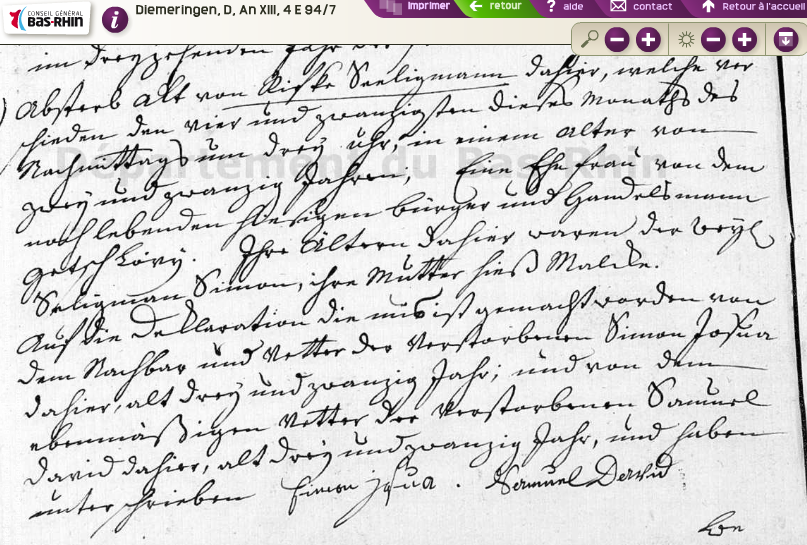 CONSEIL GÉNÉRAL
BAS-RHIN
Diemeringen, D, An XIII, 4 E 94/7
imprimer
retour
aide
contact
Retour à l'accueil
Département du Bas-Rhin
im dreyzehenden Jahr der
Absterb Akt von Seeligmann dahier, welche ver
schieden den vier und zwanzigsten dieses Monaths des
Nachmittags um drey Uhr, in einem Alter von
zwey und zwanzig Jahren, Eine Ehefrau von dem
noch lebenden hiesigen bürger und Handelsmann
Getsch Lövÿ. Ihre Ältern dahier waren der
Seligman Simon, ihre Mutter hieß
Auf die Deklaration die uns ist gemacht worden von
dem Nachbar und Vetter der Verstorbenen Simon Josua
dahier, alt dreÿ und zwanzig Jahr; und von dem
ebenmäßigen Vetter der Verstorbenen Samuel
David dahier, alt dreÿ und zwanzig Jahr, und haben
unterschrieben Simon Josua . Samuel David